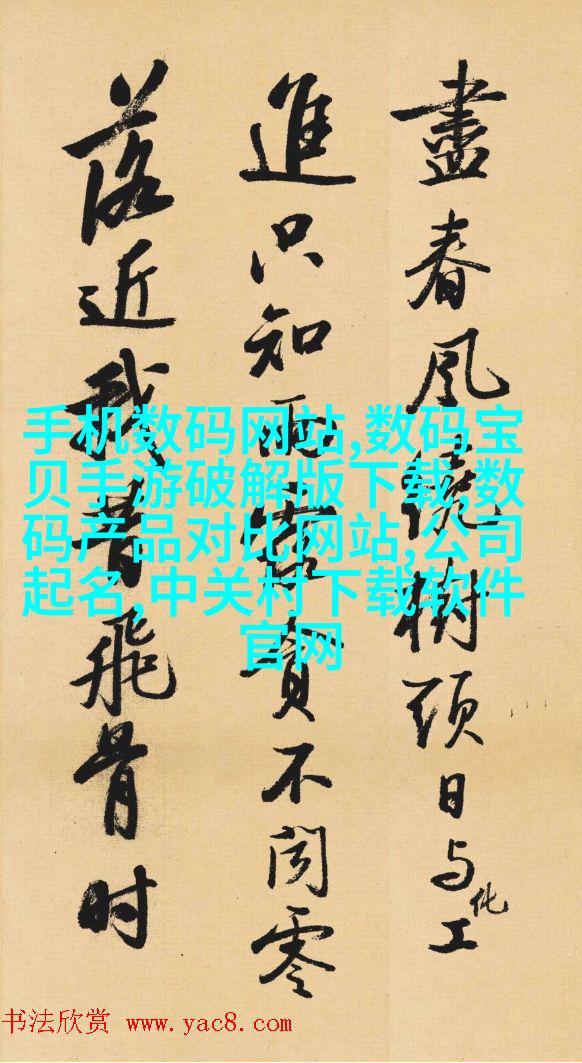 盡春風繞樹頭日与化工
進只知雨露貪不闻零
落近我昔飛骨时
手机数码网站,数码宝
贝手游破解版下载,数
码产品对比网站,公司
起名,中关村下载软件
官网
书法欣赏 www.yac8.com